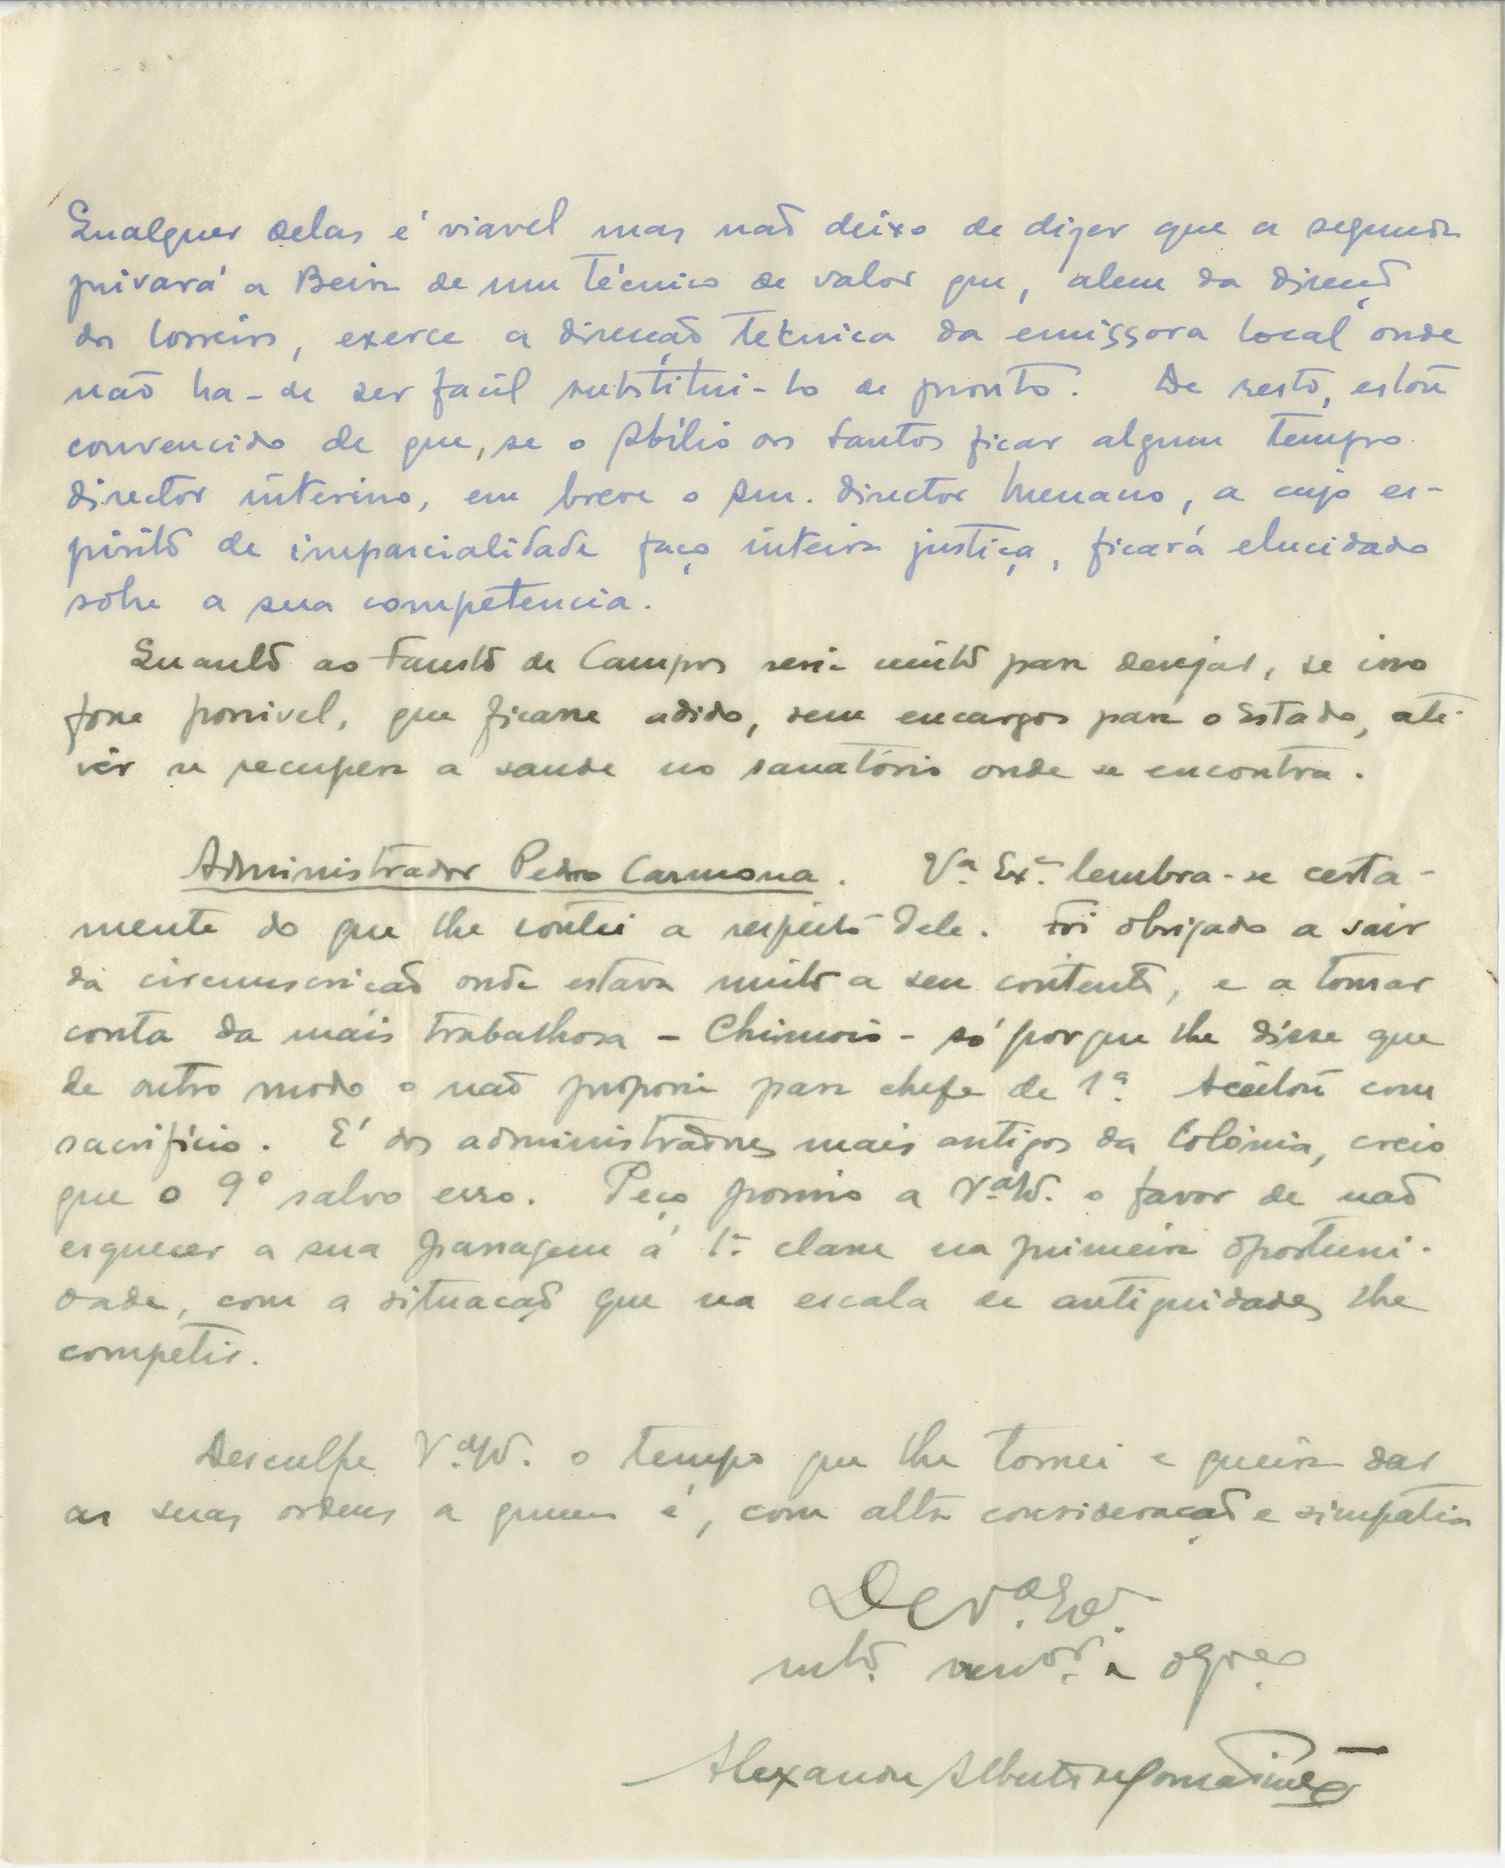 Qualquer delas é viavel mas não deixo de dizer que a segunda
privará a Beira de um técnico de valor que, alem da direcção
dos Correios, exerce a direcção técnica da emissora local onde
não ha-de ser facil substitui-lo de pronto. De resto, estou
convencido de que, se o Abílio dos Santos ficar algum tempo
director interino, em breve o Snr. director Menano, a cujo es-
pírito de imparcialidade faço inteira justiça, ficará elucidado
sôbre a sua competencia.
Quanto ao Fausto de Campos seria muito para desejar, se isso
fosse possivel, que ficasse adido, sem encargos para o Estado, até
vêr se recupera a saude no sanatório onde se encontra.
Administrador Pedro Carmona. Vª. Exª. lembra-se certa-
mente do que lhe contei a respeito dele. Foi obrigado a sair
da circunscrição onde estava muito a seu contento, e a tomar
conta da mais trabalhosa - Chimoio - só porque lhe disse que
de outro modo o não proporia para chefe de 1ª. Aceitou com
sacrifício. É dos administradores mais antigos da Colónia, creio
que o 9º salvo erro. Peço por isso a Vª. Exª. o favor de não
esquecer a sua passagem á 1ª. classe na primeira oportuni-
dade, com a situação que na escala de antiguidades lhe
competir.
Desculpe Vª. Exª. o tempo que lhe tomei e queira dar
as suas ordens a quem é, com alta consideração e simpatia
De Vª. Exª.
mtº. venor. e
Alexandre Alberto de